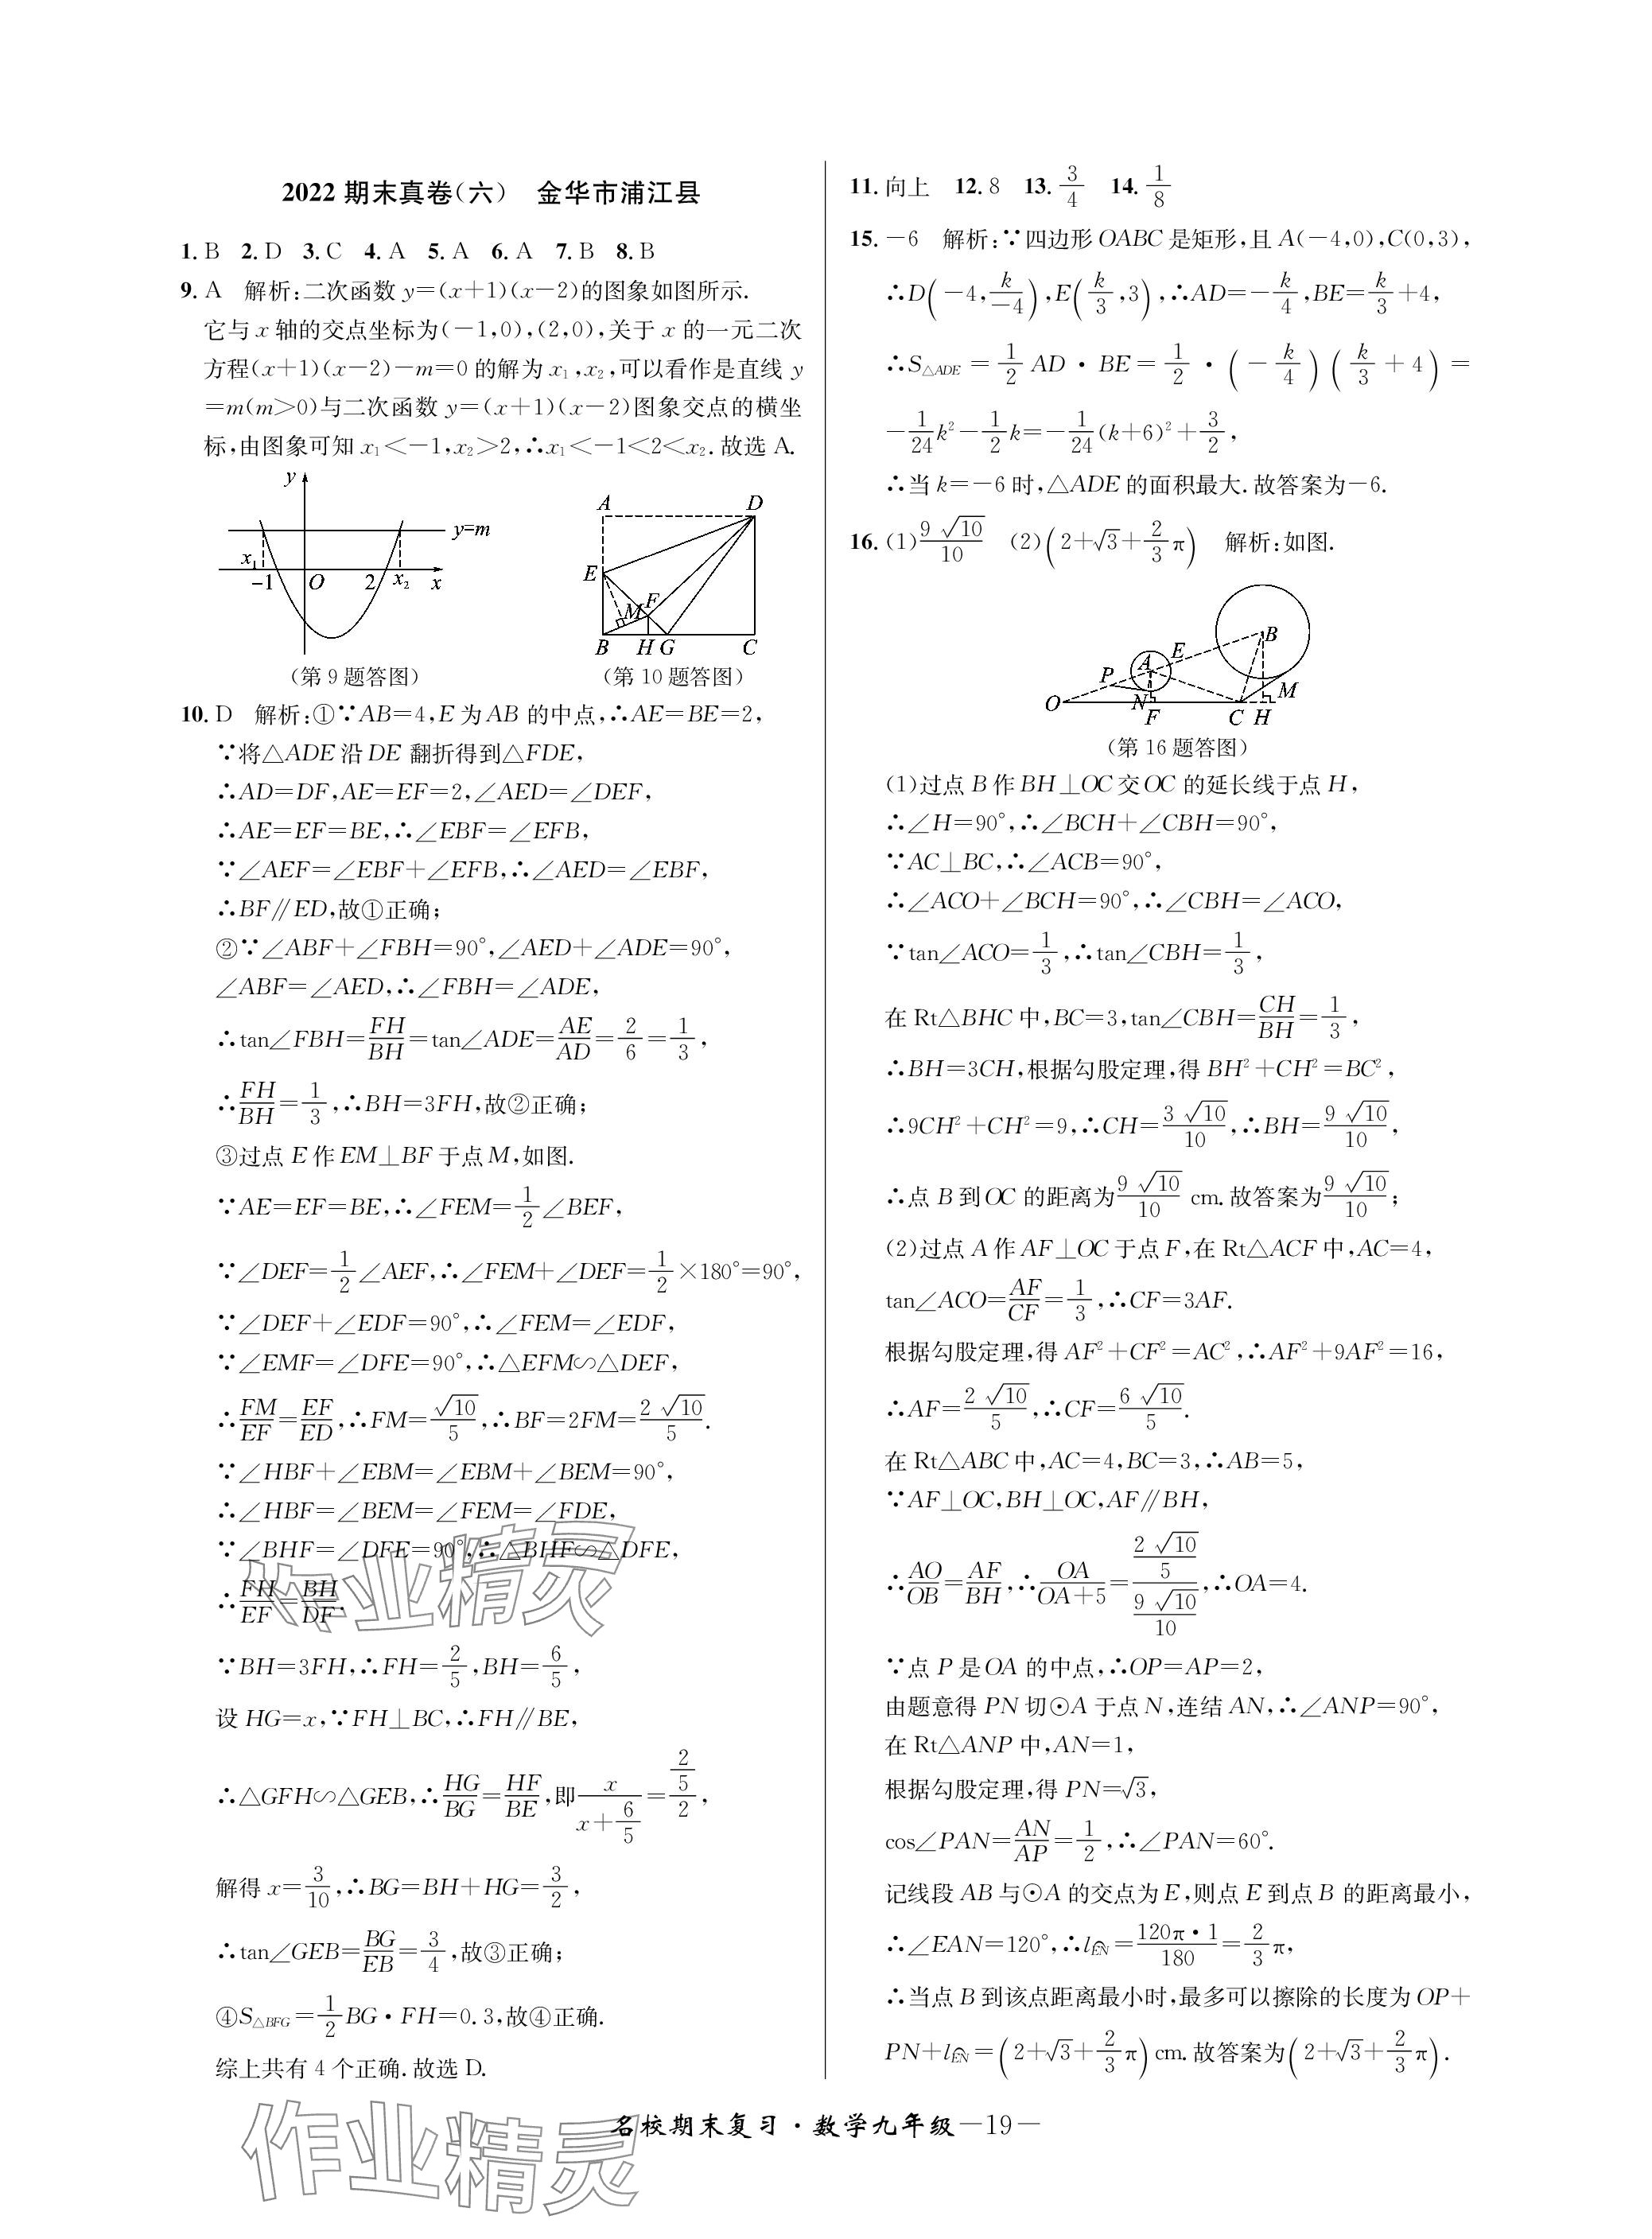 2022 期末真卷(六)　金华市浦江县
1. B　2. D　3. C　4. A　5. A　6. A　7. B　8. B
9. A　解析:二次函数 y=(x+1)(x−2)的图象如图所示.
它与 x 轴的交点坐标为(−1,0),(2,0),关于 x 的一元二次
方程(x+1)(x−2)−m=0 的解为 x₁,x₂,可以看作是直线 y
=m(m>0)与二次函数 y=(x+1)(x−2)图象交点的横坐
标,由图象可知 x₁<−1,x₂>2,∴x₁<−1<2<x₂.故选 A.
y
y=m
x₁
−1
O
2
x₂
x
(第 9 题答图)
A
D
E
M
F
B
H
G
C
(第 10 题答图)
10. D　解析:①∵AB=4,E 为 AB 的中点,∴AE=BE=2,
∵将△ADE 沿 DE 翻折得到△FDE,
∴AD=DF,AE=EF=2,∠AED=∠DEF,
∴AE=EF=BE,∴∠EBF=∠EFB,
∵∠AEF=∠EBF+∠EFB,∴∠AED=∠EBF,
∴BF∥ED,故①正确;
②∵∠ABF+∠FBH=90°,∠AED+∠ADE=90°,
∠ABF=∠AED,∴∠FBH=∠ADE,
∴tan∠FBH=FH/BH=tan∠ADE=AE/AD=2/6=1/3,
∴FH/BH=1/3,∴BH=3FH,故②正确;
③过点 E 作 EM⊥BF 于点 M,如图.
∵AE=EF=BE,∴∠FEM=1/2∠BEF,
∵∠DEF=1/2∠AEF,∴∠FEM+∠DEF=1/2×180°=90°,
∵∠DEF+∠EDF=90°,∴∠FEM=∠EDF,
∵∠EMF=∠DFE=90°,∴△EFM∽△DEF,
∴FM/EF=EF/ED,∴FM=√10/5,∴BF=2FM=2√10/5.
∵∠HBF+∠EBM=∠EBM+∠BEM=90°,
∴∠HBF=∠BEM=∠FEM=∠FDE,
∵∠BHF=∠DFE=90°,∴△BHF∽△DFE,
∴FH/EF=BH/DF.
∵BH=3FH,∴FH=2/5,BH=6/5,
设 HG=x,∵FH⊥BC,∴FH∥BE,
∴△GFH∽△GEB,∴HG/BG=HF/BE,即x/(x+6/5)=(2/5)/2,
解得 x=3/10,∴BG=BH+HG=3/2,
∴tan∠GEB=BG/EB=3/4,故③正确;
④S△BFG=1/2BG·FH=0.3,故④正确.
综上共有 4 个正确.故选 D.
11. 向上　12. 8　13. 3/4　14. 1/8
15. −6　解析:∵四边形 OABC 是矩形,且 A(−4,0),C(0,3),
∴D(−4,k/−4),E(k/3,3),∴AD=−k/4,BE=k/3+4,
∴S△ADE=1/2AD·BE=1/2·(−k/4)(k/3+4)=
−1/24k²−1/2k=−1/24(k+6)²+3/2,
∴当 k=−6 时,△ADE 的面积最大.故答案为−6.
16. (1)9√10/10　(2)(2+√3+2/3π)　解析:如图.
B
E
A
P
M
N
O
F
C
H
(第 16 题答图)
(1)过点 B 作 BH⊥OC 交 OC 的延长线于点 H,
∴∠H=90°,∴∠BCH+∠CBH=90°,
∵AC⊥BC,∴∠ACB=90°,
∴∠ACO+∠BCH=90°,∴∠CBH=∠ACO,
∵tan∠ACO=1/3,∴tan∠CBH=1/3,
在 Rt△BHC 中,BC=3,tan∠CBH=CH/BH=1/3,
∴BH=3CH,根据勾股定理,得 BH²+CH²=BC²,
∴9CH²+CH²=9,∴CH=3√10/10,∴BH=9√10/10,
∴点 B 到 OC 的距离为9√10/10 cm.故答案为9√10/10;
(2)过点 A 作 AF⊥OC 于点 F,在 Rt△ACF 中,AC=4,
tan∠ACO=AF/CF=1/3,∴CF=3AF.
根据勾股定理,得 AF²+CF²=AC²,∴AF²+9AF²=16,
∴AF=2√10/5,∴CF=6√10/5.
在 Rt△ABC 中,AC=4,BC=3,∴AB=5,
∵AF⊥OC,BH⊥OC,AF∥BH,
∴AO/OB=AF/BH,∴OA/(OA+5)=(2√10/5)/(9√10/10),∴OA=4.
∵点 P 是 OA 的中点,∴OP=AP=2,
由题意得 PN 切⊙A 于点 N,连结 AN,∴∠ANP=90°,
在 Rt△ANP 中,AN=1,
根据勾股定理,得 PN=√3,
cos∠PAN=AN/AP=1/2,∴∠PAN=60°.
记线段 AB 与⊙A 的交点为 E,则点 E 到点 B 的距离最小,
∴∠EAN=120°,∴l⌒EN=120π·1/180=2/3π,
∴当点 B 到该点距离最小时,最多可以擦除的长度为 OP+
PN+l⌒EN=(2+√3+2/3π)cm.故答案为(2+√3+2/3π).
作业精灵
名校期末复习·数学九年级—19—
作业精灵